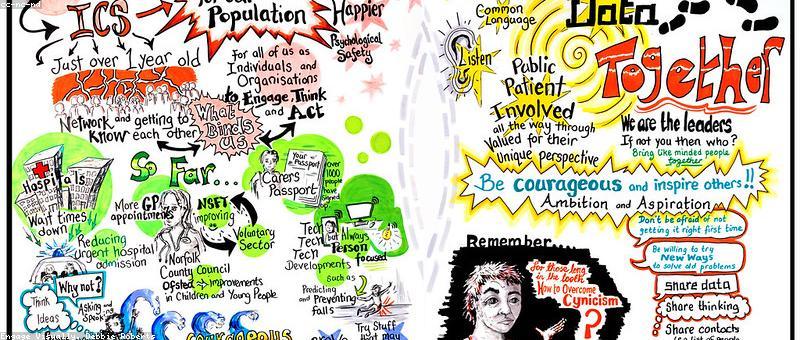 cc-nc-nd
ICS
for our
Population
Happier
Psychological
Safety
Just over 1 year old
For all of us as
Individuals and
Organisations
to Engage, Think
and Act
Network and getting to
know each other
What
Binds
us
So Far...
Hospitals
Wait times
down
Reducing
Urgent hospital
admission
More GP
appointments
NSFT
improving
Voluntary
Sector
Norfolk
County Council
Ofsted → improvements
in Children and Young People
Carers
Passport
Your
Passport
over
1000
people
have
signed
Tech
Tech
Tech
Developments
but Always
Person
focused
Such as
Predicting
and Preventing
Falls
Why not?
Think
Ideas
Asking
and
Speaking
Try Stuff
Engage Visually, Debbie Roberts
Common
Language
Listen
Data
Together
Public
Patient
Involved
all the way through
Valued for their
Unique perspective
We are the leaders
If not you then who?
Bring like minded people
together
Be courageous and inspire others!!
Ambition and Aspiration
Remember...
for those long
in the tooth
How to Overcome
Cynicism
?
Don't be afraid of not
getting it right first time
Be willing to try
New Ways
to solve old problems
share data
Share thinking
Share contacts